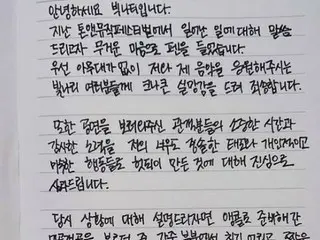 안녕하세요 빅나티입니다.
지난 톤앤뮤직페스티벌에서 일어난 일에 대해 말씀
드리고자 무거운 마음으로 펜을 들었습니다.
우선 아무대가 없이 저와 제 음악을 응원해주시는
빛나리 여러분들께 크나큰 실망감을 드려 죄송합니다.
또한 공연을 보러와주신 관객분들의 소중한 시간과
감사한 노력을 저의 너무도 경솔한 태도와 개인적이고
행동들로 헛되이 만든 것에 대해 진심으로
사과드립니다.
당시 상황에 대해 설명드리자면 앵콜로 준비해간
부르던 중